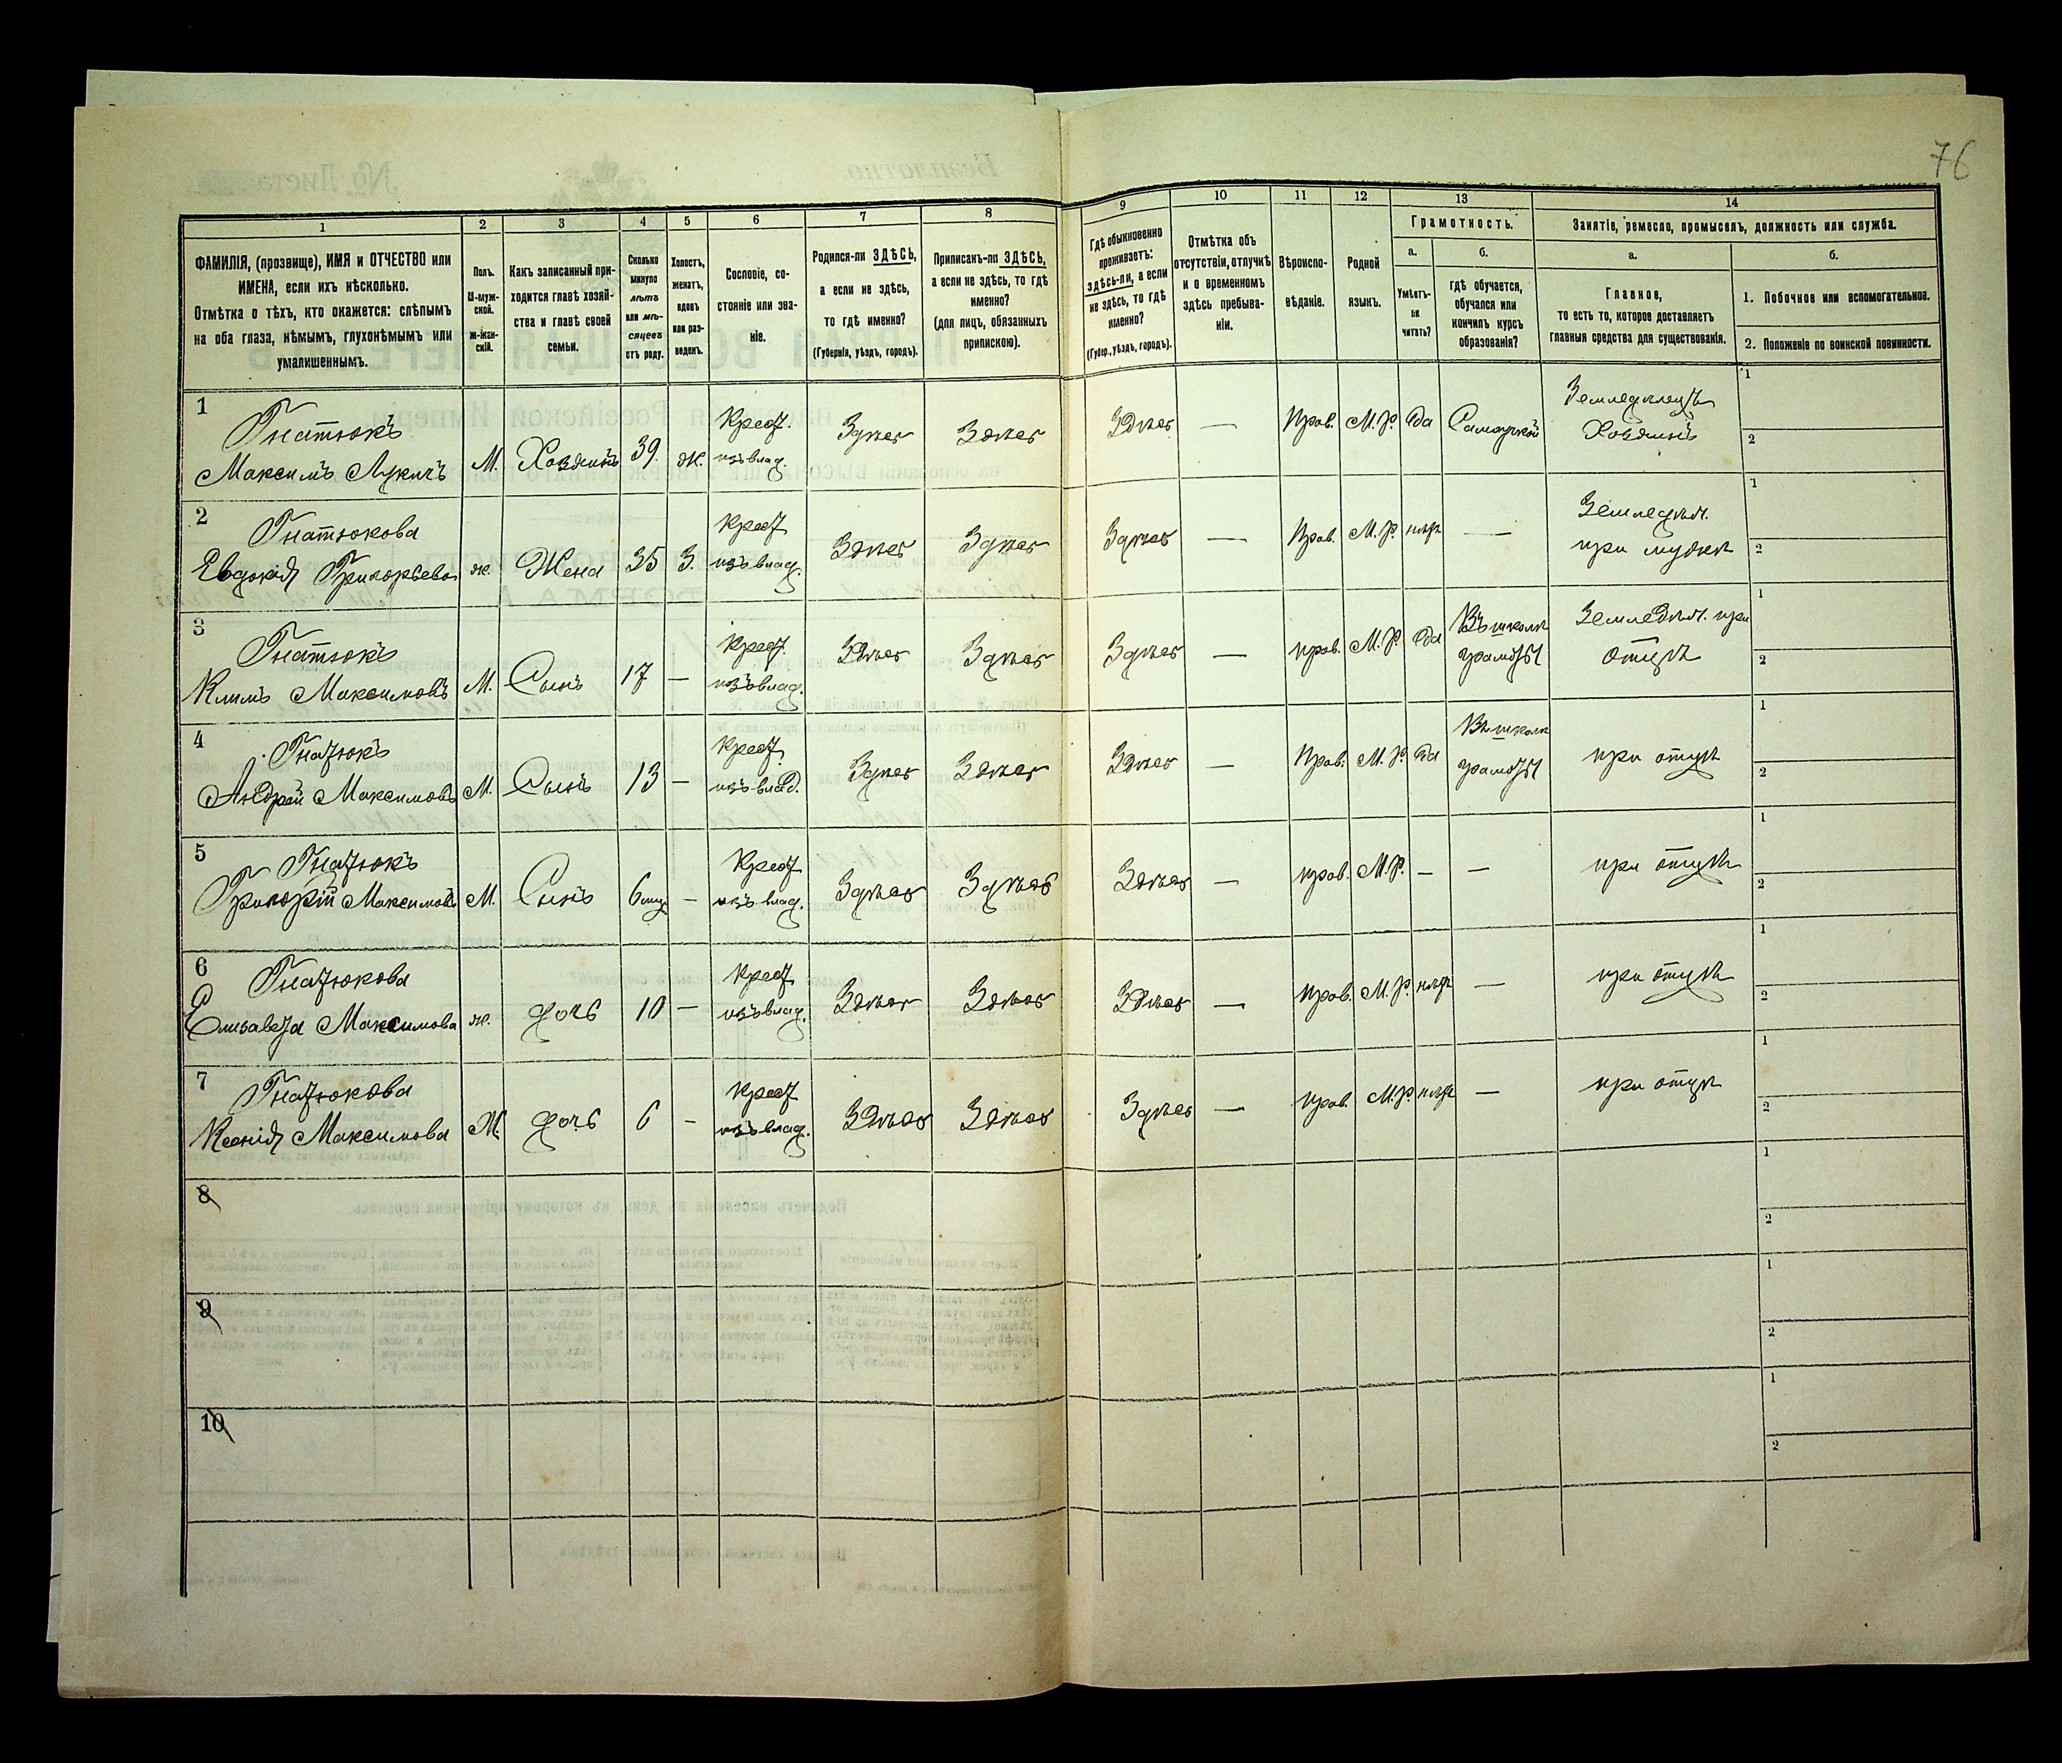 76
1
2
3
4
5
6
7
8
9
10
11
12
13
14
ФАМИЛІЯ, (прозвище), ИМЯ и ОТЧЕСТВО или
ИМЕНА, если ихъ нѣсколько.
Отмѣтка о тѣхъ, кто окажется: слѣпымъ
на оба глаза, нѣмымъ, глухонѣмымъ или
умалишеннымъ.
Полъ.
М-муж-
ской.
Ж-жен-
скій.
Какъ записанный при-
ходится главѣ хозяй-
ства и главѣ своей
семьи.
Сколько
минуло
лѣтъ
или мѣ-
сяцевъ
отъ роду.
Холостъ,
женатъ,
вдовъ
или раз-
веденъ.
Сословіе, со-
стояніе или зва-
ніе.
Родился-ли ЗДѢСЬ,
а если не здѣсь,
то гдѣ именно?
(Губернія, уѣздъ, городъ).
Приписанъ-ли ЗДѢСЬ,
а если не здѣсь, то гдѣ
именно?
(для лицъ, обязанныхъ
припискою).
Гдѣ обыкновенно
проживаетъ:
здѣсь-ли, а если
не здѣсь, то гдѣ
именно?
(Губер., уѣздъ, городъ).
Отмѣтка объ
отсутствіи, отлучкѣ
и о временномъ
здѣсь пребыва-
ніи.
Вѣроиспо-
вѣданіе.
Родной
языкъ.
Грамотность.
а.
Умѣетъ-
ли
читать?
б.
гдѣ обучается,
обучался или
кончилъ курсъ
образованія?
Занятіе, ремесло, промыселъ, должность или служба.
а.
Главное,
то есть то, которое доставляетъ
главныя средства для существованія.
б.
1. Побочное или вспомогательное.
2. Положеніе по воинской повинности.
1
Гнатюкъ
Максимъ Лукичъ
М. Хозяинъ 39 ж.
Крест.
изъ влад.
Здѣсь Здѣсь Здѣсь — Прав. М.Р. Да Самоучкой
Земледѣлецъ
Хозяинъ
1
2
2
Гнатюкова
Евдокія Григорьева
ж. Жена 35 З.
Крест
изъ влад.
Здѣсь Здѣсь Здѣсь — Прав. М.Р. нѣтъ —
Земледѣл.
при мужѣ
1
2
3
Гнатюкъ
Климъ Максимовъ
М. Сынъ 17 —
Крест.
изъ влад.
Здѣсь Здѣсь Здѣсь — прав. М.Р. Да
Въ школѣ
грамоты
Земледѣл. при
отцѣ
1
2
4
Гнатюкъ
Андрей Максимовъ
М. Сынъ 13 —
Крест.
изъ влад.
Здѣсь Здѣсь Здѣсь — Прав. М.Р. Да
Въ школѣ
грамоты
при отцѣ
1
2
5
Гнатюкъ
Григорій Максимовъ
М. Сынъ 6 —
Крест
изъ влад.
Здѣсь Здѣсь Здѣсь — прав. М.Р. — —
при отцѣ
1
2
6
Гнатюкова
Елизавета Максимова
ж. дочь 10 —
Крест
изъ влад.
Здѣсь Здѣсь Здѣсь — прав. М.Р. нѣтъ —
при отцѣ
1
2
7
Гнатюкова
Ксенія Максимова
Ж. дочь 6 —
Крест
изъ влад.
Здѣсь Здѣсь Здѣсь — прав. М.Р. нѣтъ —
при отцѣ
1
2
8
1
2
9
1
2
10
1
2